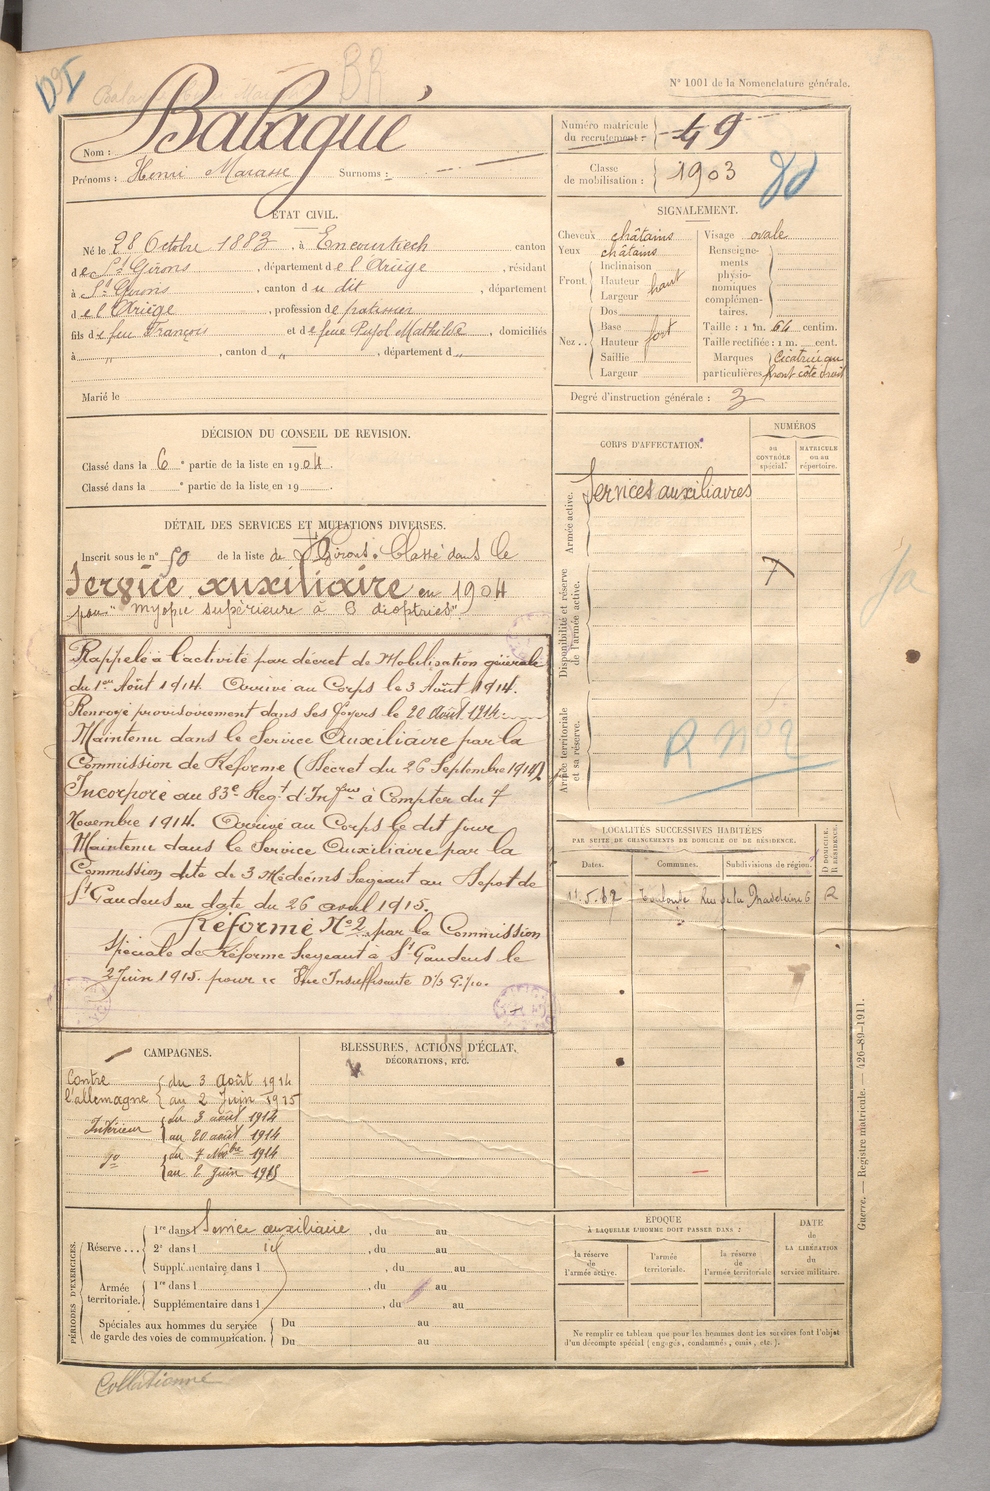 D9I
BR
N° 1001 de la Nomenclature générale.
Nom : Balagué
Prénoms : Henri Marasse Surnoms :
Numéro matricule du recrutement : 49
Classe de mobilisation : 1903
ÉTAT CIVIL.
Né le 28 Octobre 1883, à Encourtiech canton
de St Girons, département de l'Ariège, résidant
à St Girons, canton du dit, département
de l'Ariège, profession de patissier
fils de feu François et de feue Pujol Mathilde, domiciliés
à " , canton d " , département d "
Marié le
SIGNALEMENT.
Cheveux châtains
Yeux châtains
Front. Inclinaison
Hauteur haut
Largeur
Nez.. Dos
Base
Hauteur fort
Saillie
Largeur
Visage ovale
Renseignements physionomiques complémentaires.
Taille : 1 m. 64 centim.
Taille rectifiée : 1 m. cent.
Marques particulières Cicatrice au front côté droit
Degré d'instruction générale : 3
DÉCISION DU CONSEIL DE REVISION.
Classé dans la 6e partie de la liste en 1904.
Classé dans la e partie de la liste en 19
DÉTAIL DES SERVICES ET MUTATIONS DIVERSES.
Inscrit sous le n° 50 de la liste de St Girons. Classé dans le
Service auxiliaire en 1904
pour "myopie supérieure à 6 dioptries"
Rappelé à l'activité par décret de Mobilisation générale
du 1er Août 1914. Arrivé au Corps le 3 Août 1914.
Renvoyé provisoirement dans ses foyers le 20 Août 1914.
Maintenu dans le Service Auxiliaire par la
Commission de Réforme (Décret du 26 Septembre 1914).
Incorporé au 83e Régt d'Infrie à Compter du 7
Novembre 1914. Arrivé au Corps le dit jour
Maintenu dans le Service Auxiliaire par la
Commission dite de 3 Médecins Siégeant au Dépot de
St Gaudens en date du 26 avril 1915.
Réformé N° 2 par la Commission
Spéciale de Réforme Siégeant à St Gaudens le
2 Juin 1915. pour Vue Insuffisante
CORPS D'AFFECTATION.
NUMÉROS
AU CONTRÔLE spécial.
MATRICULE ou au répertoire.
Armée active.
Services auxiliaires
Disponibilité et réserve de l'armée active.
7
Armée territoriale et sa réserve.
R n° 2
LOCALITÉS SUCCESSIVES HABITÉES
PAR SUITE DE CHANGEMENTS DE DOMICILE OU DE RÉSIDENCE.
Dates. Communes. Subdivisions de région. D DOMICILE. R RÉSIDENCE.
Toulouse Rue de la Madeleine 6 R
CAMPAGNES.
Contre l'allemagne du 3 Août 1914
au 2 Juin 1915
Intérieur du 3 août 1914
au 20 août 1914
do du 7 Nobre 1914
au 2 Juin 1915
BLESSURES, ACTIONS D'ÉCLAT,
DÉCORATIONS, ETC.
PÉRIODES D'EXERCICES.
Réserve ... 1re dans l Service auxiliaire, du au
2e dans l id, du au
Supplémentaire dans l , du au
Armée territoriale. 1re dans l , du au
Supplémentaire dans l , du au
Spéciales aux hommes du service de garde des voies de communication. Du au
Du au
ÉPOQUE
À LAQUELLE L'HOMME DOIT PASSER DANS :
la réserve de l'armée active.
l'armée territoriale.
la réserve de l'armée territoriale
DATE DE LA LIBÉRATION du service militaire.
Ne remplir ce tableau que pour les hommes dont les services font l'objet
d'un décompte spécial (engagés, condamnés, omis, etc.).
Guerre. — Registre matricule. — 426-89-1911.
Collationné